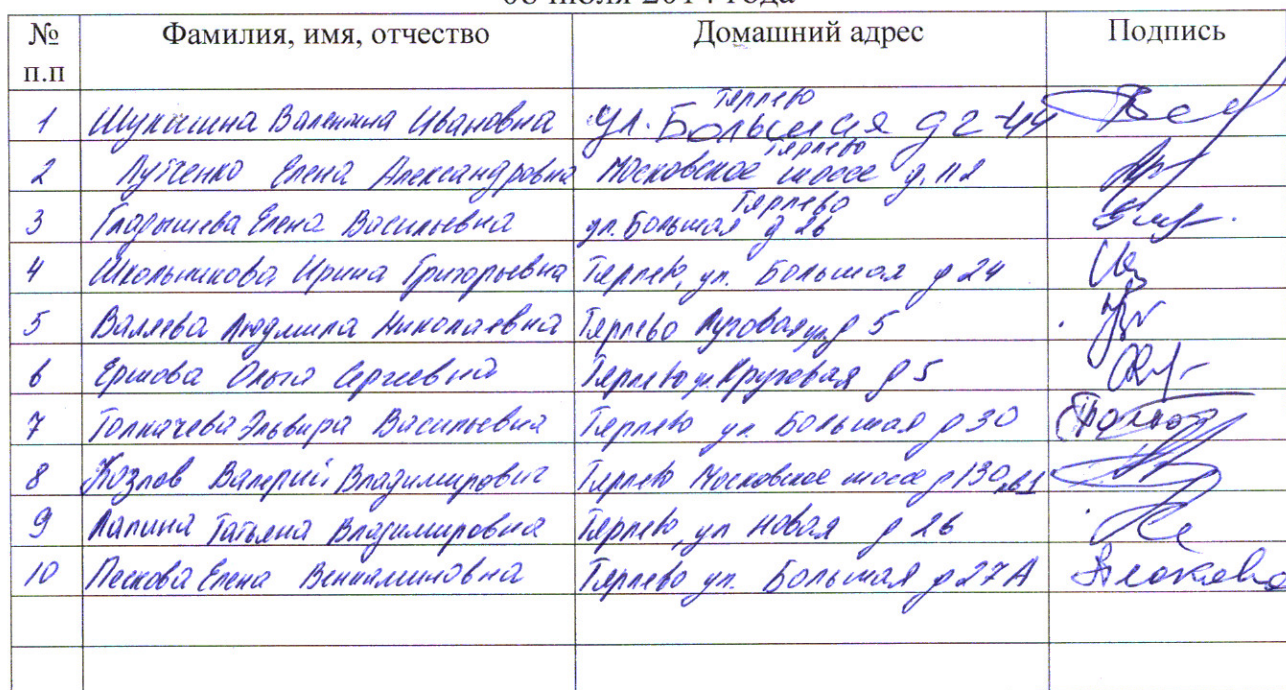 08 июля 2014 года
№ п.п Фамилия, имя, отчество Домашний адрес Подпись
1 Валентина Ивановна Тярлево ул. Большая д 2-44
2 Лутченко Елена Александровна Тярлево Московское шоссе д.
3 Гладышева Елена Васильевна Тярлево ул. Большая д 26
4 Школьникова Ирина Григорьевна Тярлево, ул. Большая д 24
5 Валяева Людмила Николаевна Тярлево Луговая ул д 5
6 Ершова Ольга Сергеевна Тярлево ул. д 5
7 Толкачева Эльвира Васильевна Тярлево ул. Большая д 30
8 Козлов Валерий Владимирович Тярлево Московское шоссе д 130
9 Лапина Татьяна Владимировна Тярлево, ул Новая д 26
10 Пескова Елена Вениаминовна Тярлево ул. Большая д 27А